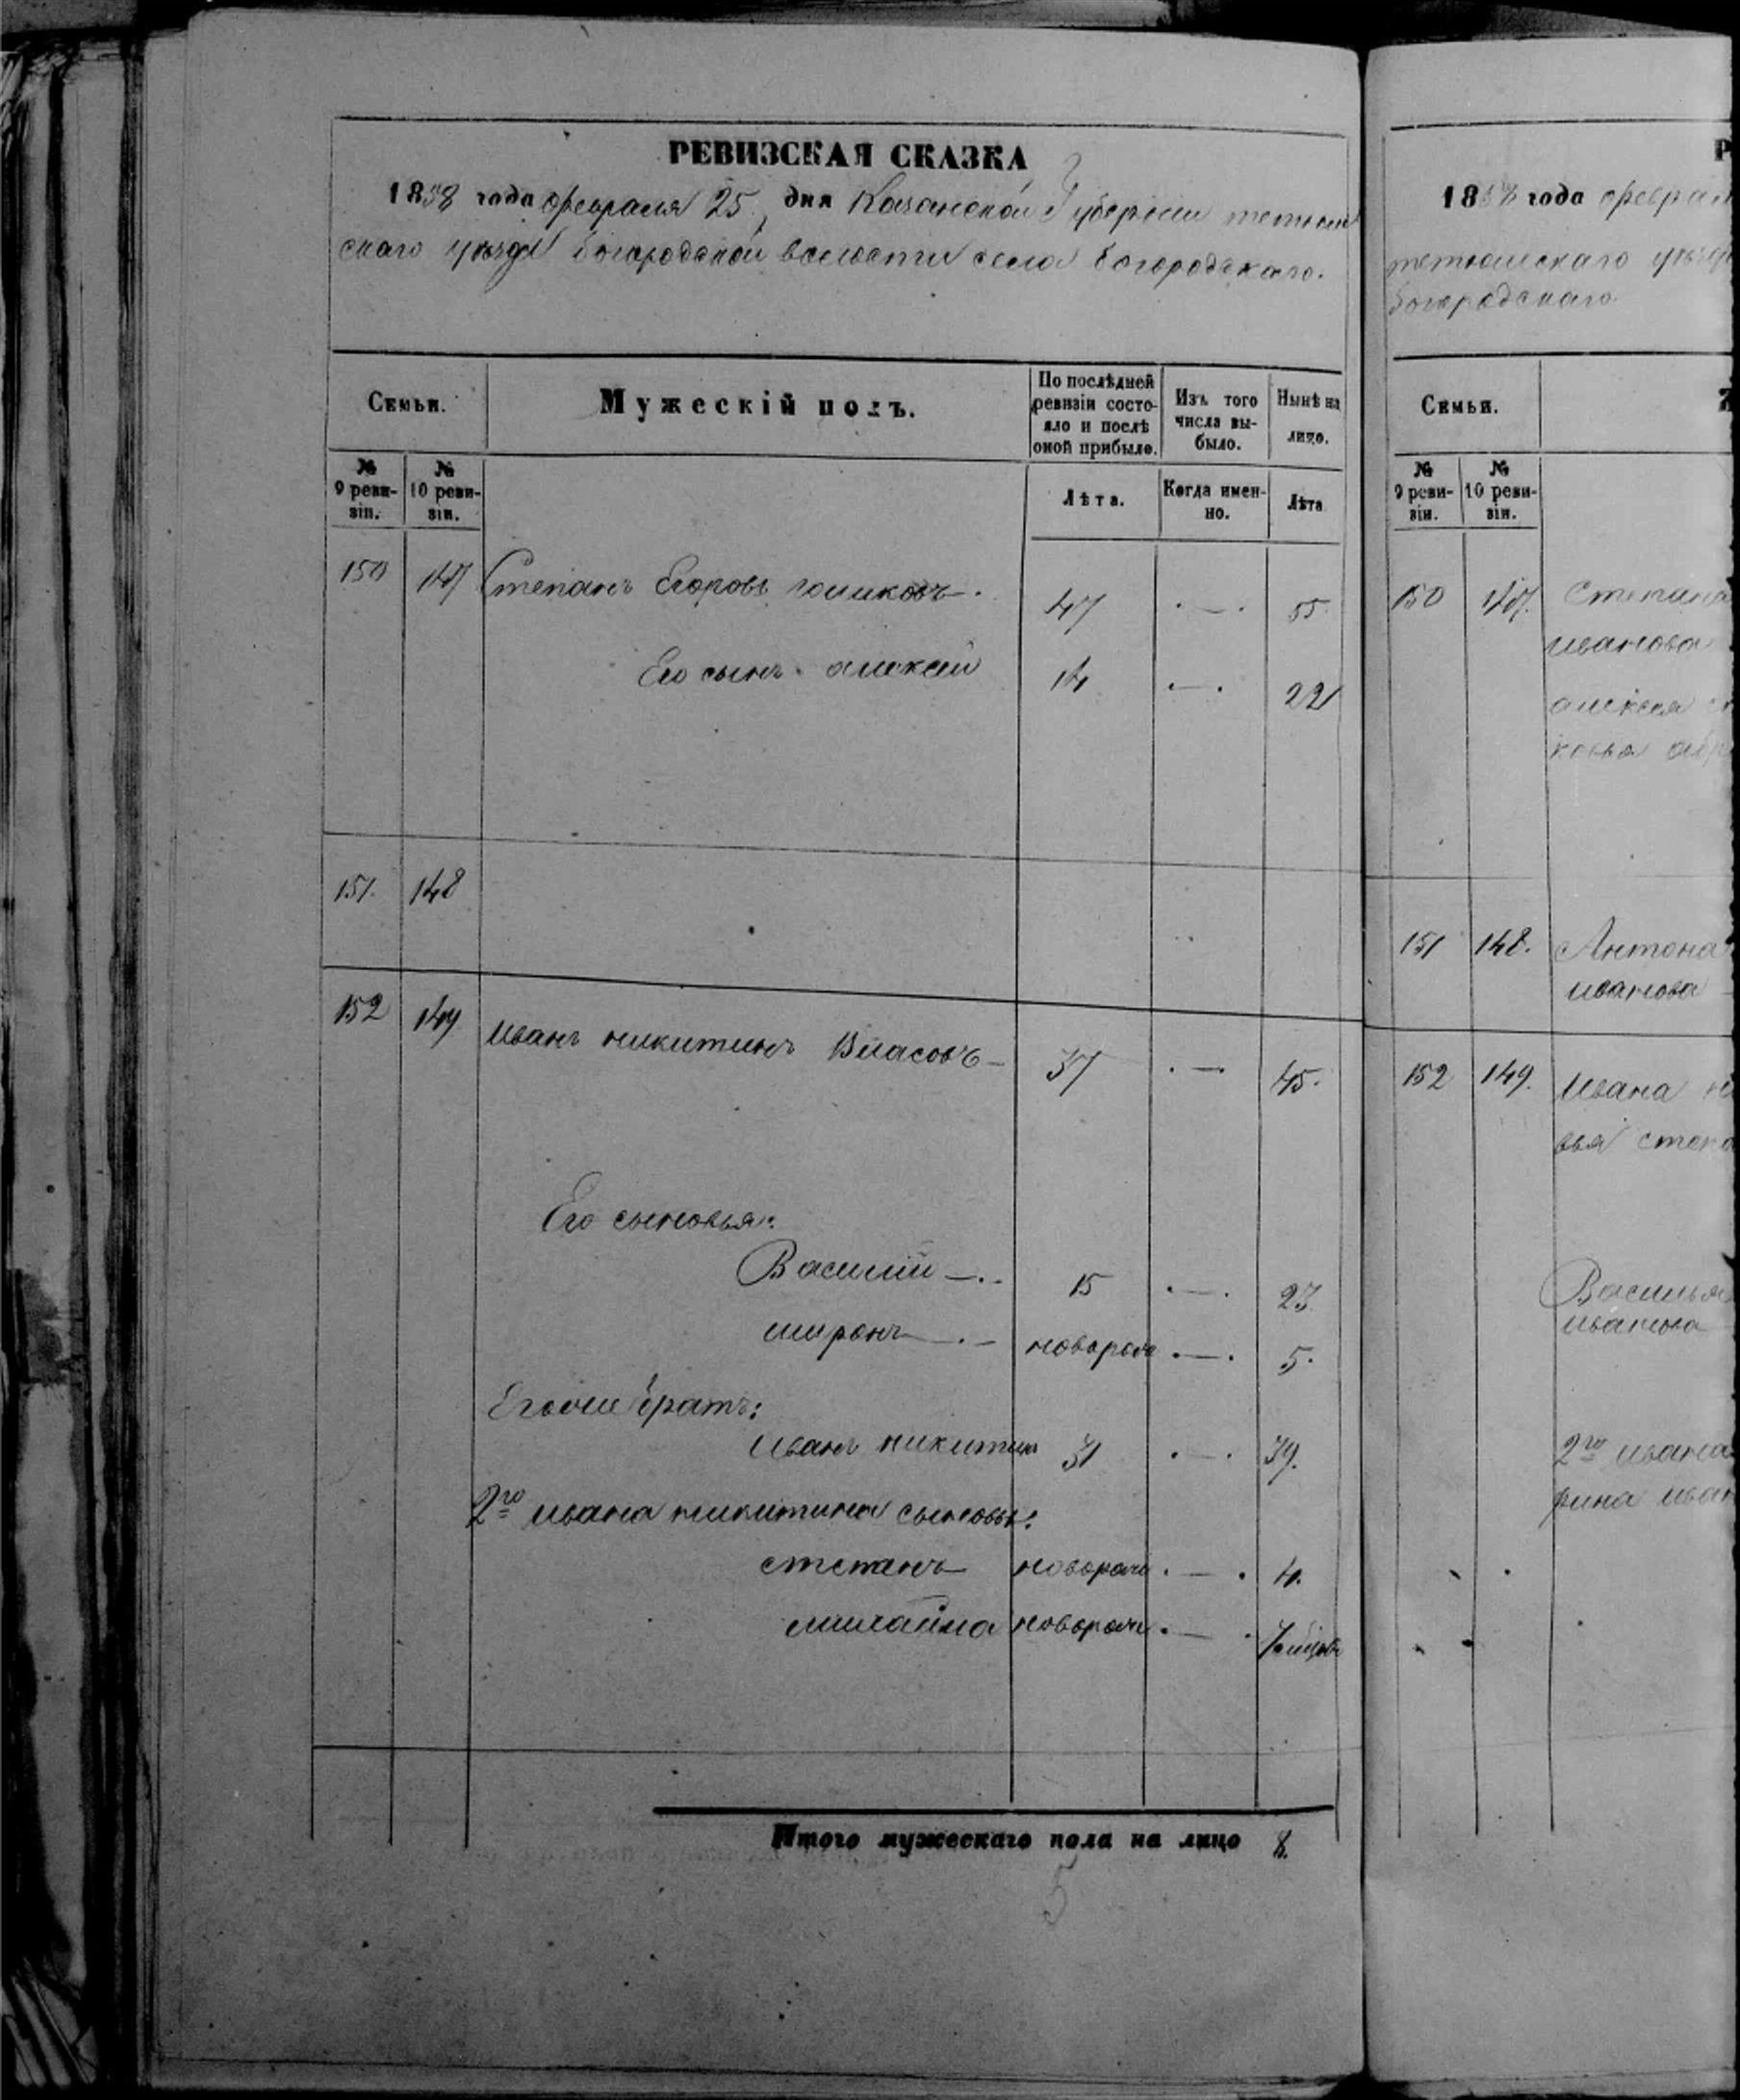 РЕВИЗСКАЯ СКАЗКА
1858 года февраля 25 дня Казанской Губернии тетюш
скаго уезда богородской волости села богородскаго.
Семьи.
Мужескій полъ.
По послѣдней ревизіи состо-
яло и послѣ
оной прибыло.
Изъ того
числа вы-
было.
Нынѣ на
лицо.
№
9 реви-
зіи.
№
10 реви-
зіи.
Лѣта.
Когда имен-
но.
Лѣта
150 147 Степанъ Егоровъ 47 . — . 55.
Его сынъ алексей 14 . — . 22
151. 148
152 149 иванъ никитинъ Власовъ — 37 . — 45.
Его сыновья:
Василий — . - 15 . — . 23.
миронъ — . — новорож . — . 5.
братъ:
иванъ никитин 31 . — . 39.
2го ивана никитина сыновья:
степанъ новорож . — . 4.
михайла новорож . — .
Итого мужескаго пола на лицо 8.
5
1858 года феврал
тетюшскаго уезд
богородскаго
Семьи.
№
9 реви-
зіи.
№
10 реви-
зіи.
150 147. Степана
иванова
алексея
151 148. Антона
иванова
152 149. Ивана
вья степ
Василья
иванова
2го ивана
рина иван